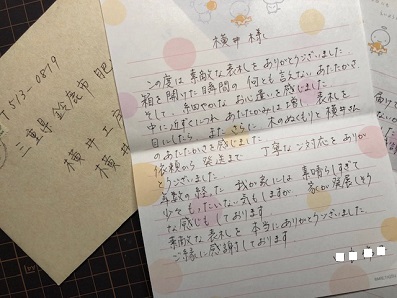 〒513-0819
三重県 鈴鹿市 肥
横井工房
横井
横井 様
この度は 素敵な 表札を ありがとうございました
箱を開けた瞬間の 何とも言えない あたたかさ
そして、細やかな お心遣いを 感じました
中に 近ずくにつれ あたたかみは増し、表札を
目にしたら また さらに 木のぬくもりと 横井さん
のあたたかさを 感じました
依頼から 発送まで 丁寧な ご対応を ありが
とうございました
年数の経た 我が家には 素晴らしすぎて
少々 もったいない気もしますが 家が発展しそう
な感じも しております
素敵な 表札を 本当に ありがとうございました
ご縁に 感謝しております